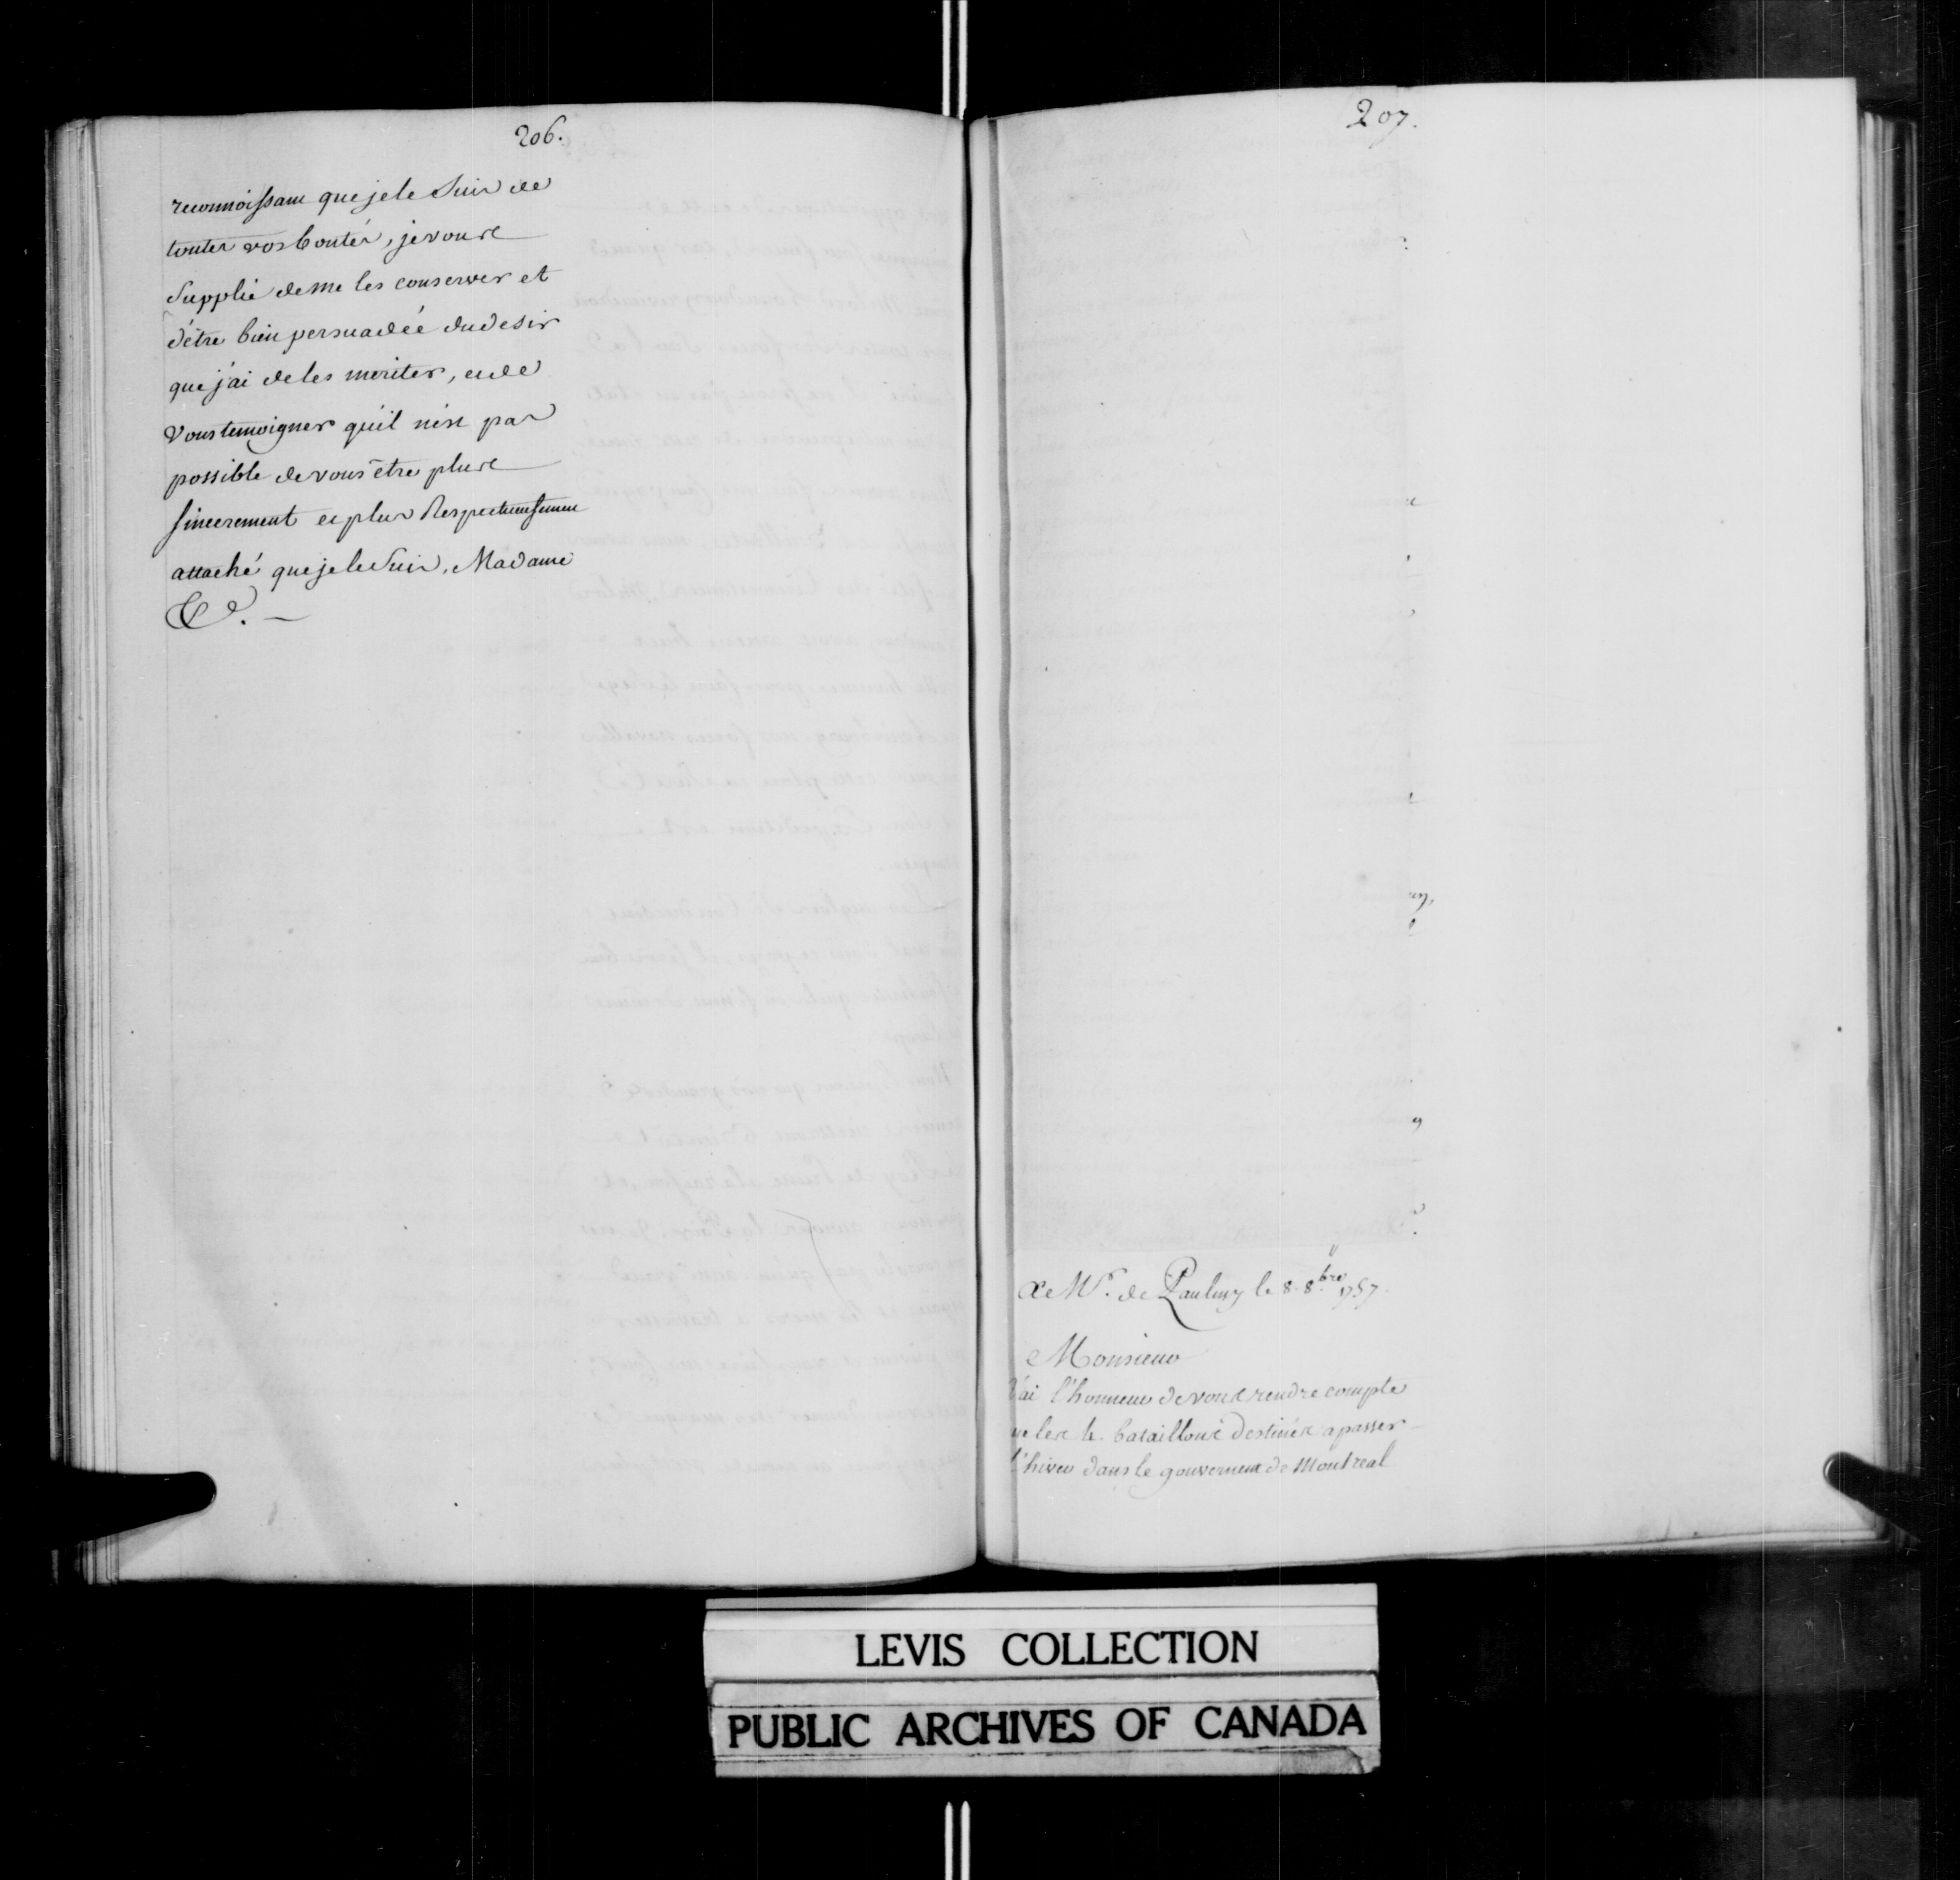 206.
reconnoissant que je le Suis de
toutes vos bontés, je vous
Supplie de me les conserver et
d'être bien persuadée du desir
que j'ai de les meriter, et de
Vous temoigner qu'il n'est pas
possible de vous être plus
sincerement et plus Respectueusement
attaché que je le Suis, Madame
&c. —
207.
A Mr. de Paulmy le 8. 8.bre 1757.
Monsieur
J'ai l'honneur de vous rendre compte
que les 4. bataillons destinés a passer
l'hiver dans le gouvernemt de Montreal
LEVIS COLLECTION
PUBLIC ARCHIVES OF CANADA